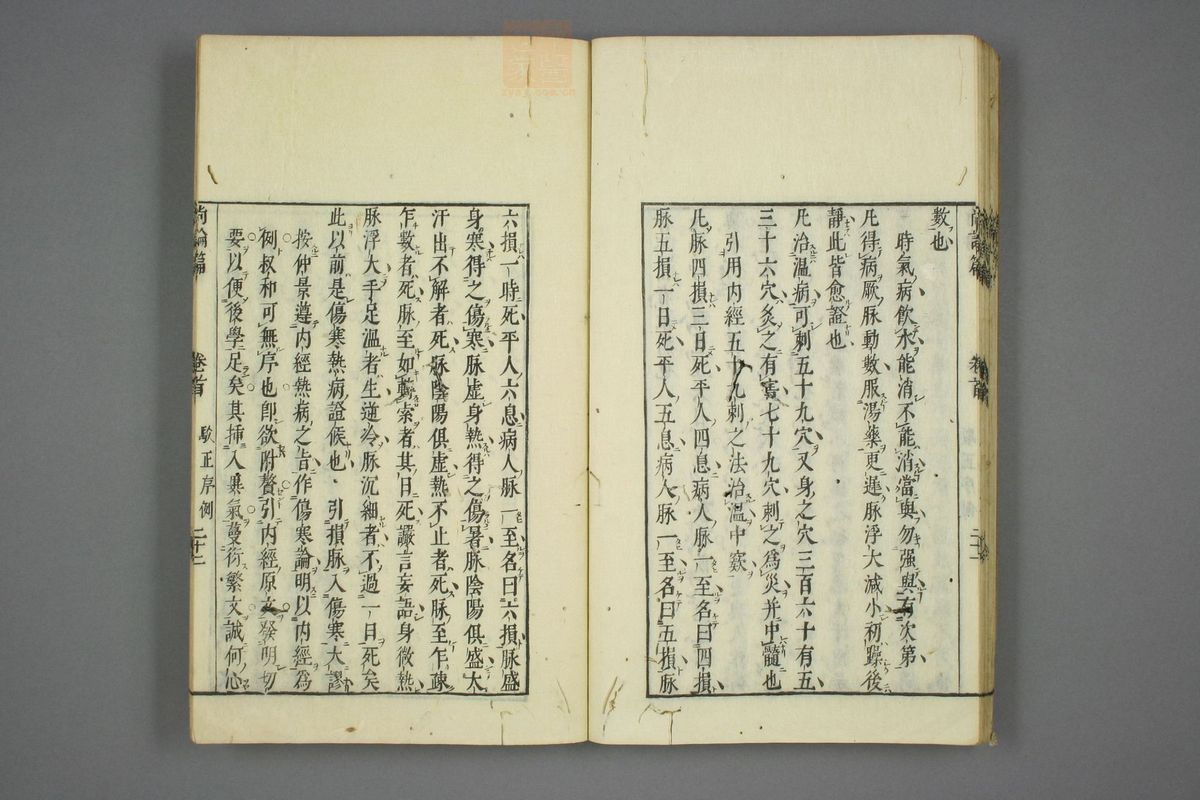 數也
時氣病飲水能消不能消當與勿强與有次第
凡得病厥脉動數服湯藥更遲脉浮大減小初躁後
靜此皆愈證也
凡治溫病可刺五十九穴又身之穴三百六十有五
三十六穴灸之有害七十九穴刺之爲災并中髓也
引用内經五十九刺之法治溫中窽
凡脉四損三日死平人四息病人脉一至名曰四損
脉五損一日死平人五息病人脉一至名曰五損脉
六損一時死平人六息病人脉一至名曰六損脉盛
身寒得之傷寒脉虛身熱得之傷暑脉陰陽俱盛大
汗出不解者死脉陰陽俱虛熱不止者死脉至乍疎
乍數者死脉至如轉索者其日死讝言妄語身微熱
脉浮大手足溫者生逆冷脉沉細者不過一日死矣
此以前是傷寒熱病證候也　引損脉入傷寒大謬
按仲景遵内經熱病之旨作傷寒論明以内經爲
例叔和可無序也卽欲附贅引内經原文發明切
要以便後學足矣其揷入㬥氣蔓衍繁文誠何心
尚論篇
卷首
駁正序例
二十二